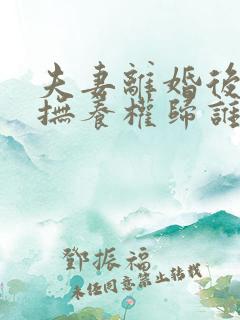 夫妻離婚後
撫養權歸誰
鄧振福
未經同意禁止轉載